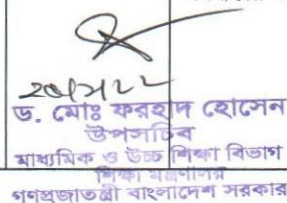 ড. মোঃ ফরহাদ হোসেন
উপসচিব
মাধ্যমিক ও উচ্চ শিক্ষা বিভাগ
শিক্ষা মন্ত্রণালয়
গণপ্রজাতন্ত্রী বাংলাদেশ সরকার